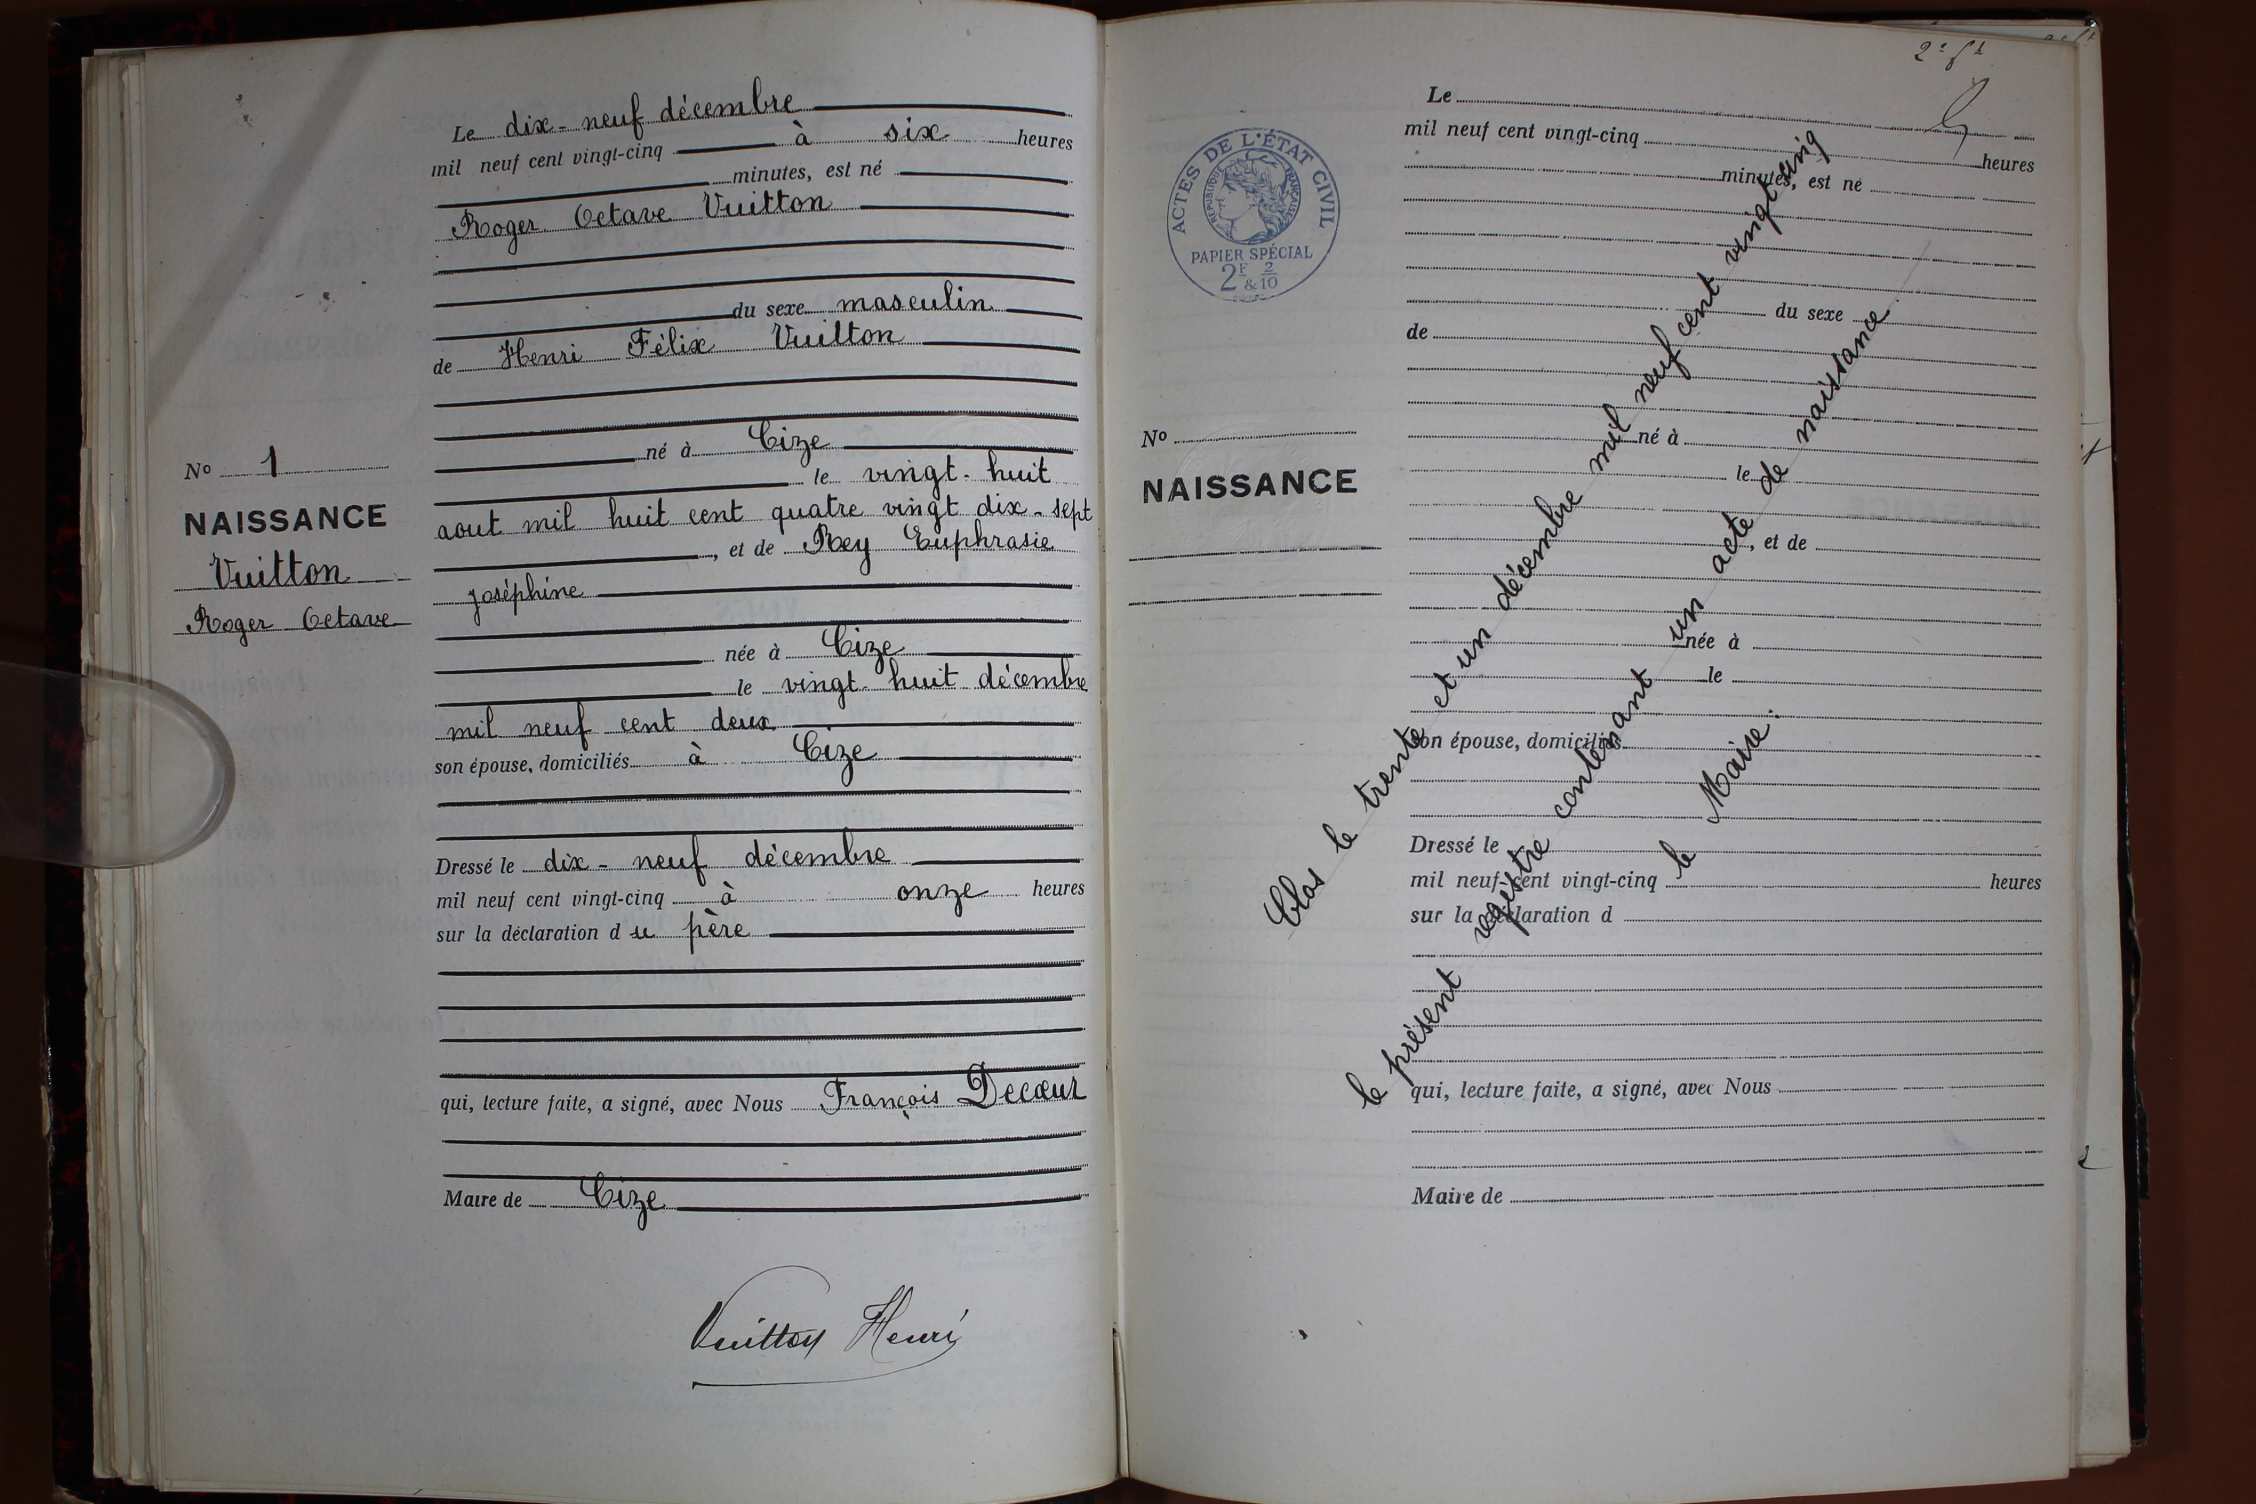 Le dix-neuf décembre
mil neuf cent vingt-cinq à six heures
minutes, est né
Roger Octave Vuitton
du sexe masculin
de Henri Félix Vuitton
né à Cize
le vingt-huit
aout mil huit cent quatre vingt dix-sept
, et de Rey Euphrasie
Joséphine
née à Cize
le vingt-huit décembre
mil neuf cent deux
son épouse, domiciliés à Cize
Dressé le dix-neuf décembre
mil neuf cent vingt-cinq à onze heures
sur la déclaration du père
qui, lecture faite, a signé, avec Nous François Decœur
Maire de Cize
Vuitton Henri
No 1
NAISSANCE
Vuitton
Roger Octave
ACTES DE L'ÉTAT CIVIL
RÉPUBLIQUE FRANÇAISE
PAPIER SPÉCIAL
2F & 2/10
No
NAISSANCE
Le
mil neuf cent vingt-cinq
heures
minutes, est né
du sexe
de
né à
le
, et de
née à
le
son épouse, domiciliés
Dressé le
mil neuf cent vingt-cinq heures
sur la déclaration d
qui, lecture faite, a signé, avec Nous
Maire de
Clos le trente et un décembre mil neuf cent vingt cinq
le présent registre contenant un acte de naissance.
le Maire.